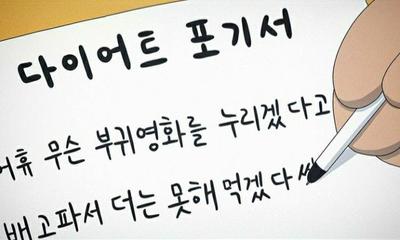 다이어트 포기서
어휴 무슨 부귀영화를 누리겠다고
배고파서 더는 못해 먹겠다